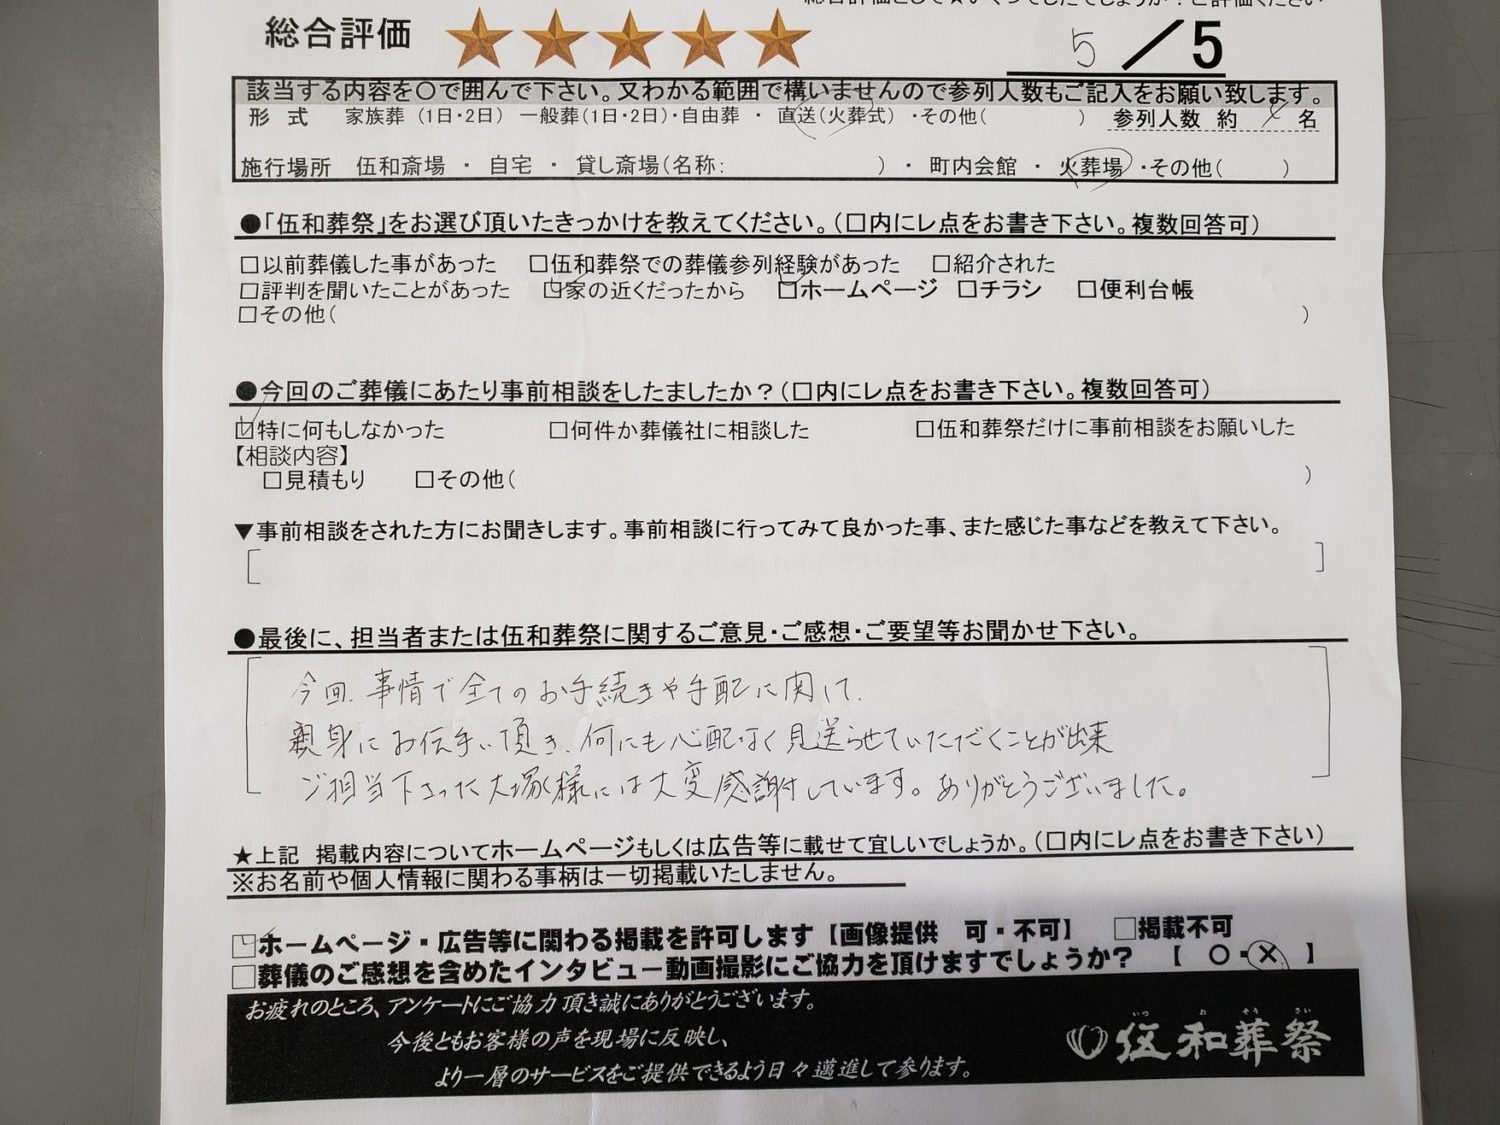 総合評価 5／5
該当する内容を〇で囲んで下さい。又わかる範囲で構いませんので参列人数もご記入をお願い致します。
形　式　家族葬（1日・2日）　一般葬（1日・2日）・自由葬　・　直送（火葬式）　・その他（　　　）　参列人数　約　　名
施行場所　伍和斎場　・　自宅　・　貸し斎場（名称:　　　）・　町内会館　・　火葬場　・その他（　　）
●「伍和葬祭」をお選び頂いたきっかけを教えてください。（□内にレ点をお書き下さい。複数回答可）
□以前葬儀した事があった　□伍和葬祭での葬儀参列経験があった　□紹介された
□評判を聞いたことがあった　☑家の近くだったから　☑ホームページ　□チラシ　□便利台帳
□その他（　　　）
●今回のご葬儀にあたり事前相談をしたましたか？（□内にレ点をお書き下さい。複数回答可）
☑特に何もしなかった　□何件か葬儀社に相談した　□伍和葬祭だけに事前相談をお願いした
【相談内容】
□見積もり　□その他（　　　）
▼事前相談をされた方にお聞きします。事前相談に行ってみて良かった事、また感じた事などを教えて下さい。
●最後に、担当者または伍和葬祭に関するご意見・ご感想・ご要望等お聞かせ下さい。
今回、事情で全てのお手続きや手配に関して、
親身にお伝手い頂き、何にも心配なく見送らせていただくことが出来
ご担当下さった大塚様には大変感謝しています。ありがとうございました。
★上記　掲載内容についてホームページもしくは広告等に載せて宜しいでしょうか。（□内にレ点をお書き下さい）
※お名前や個人情報に関わる事柄は一切掲載いたしません。
☑ホームページ・広告等に関わる掲載を許可します【画像提供　可・不可】　□掲載不可
□葬儀のご感想を含めたインタビュー動画撮影にご協力を頂けますでしょうか？　【　〇・×　】
お疲れのところ、アンケートにご協力頂き誠にありがとうございます。
今後ともお客様の声を現場に反映し、
より一層のサービスをご提供できるよう日々邁進して参ります。
いつ　わ　そう　さい
伍和葬祭